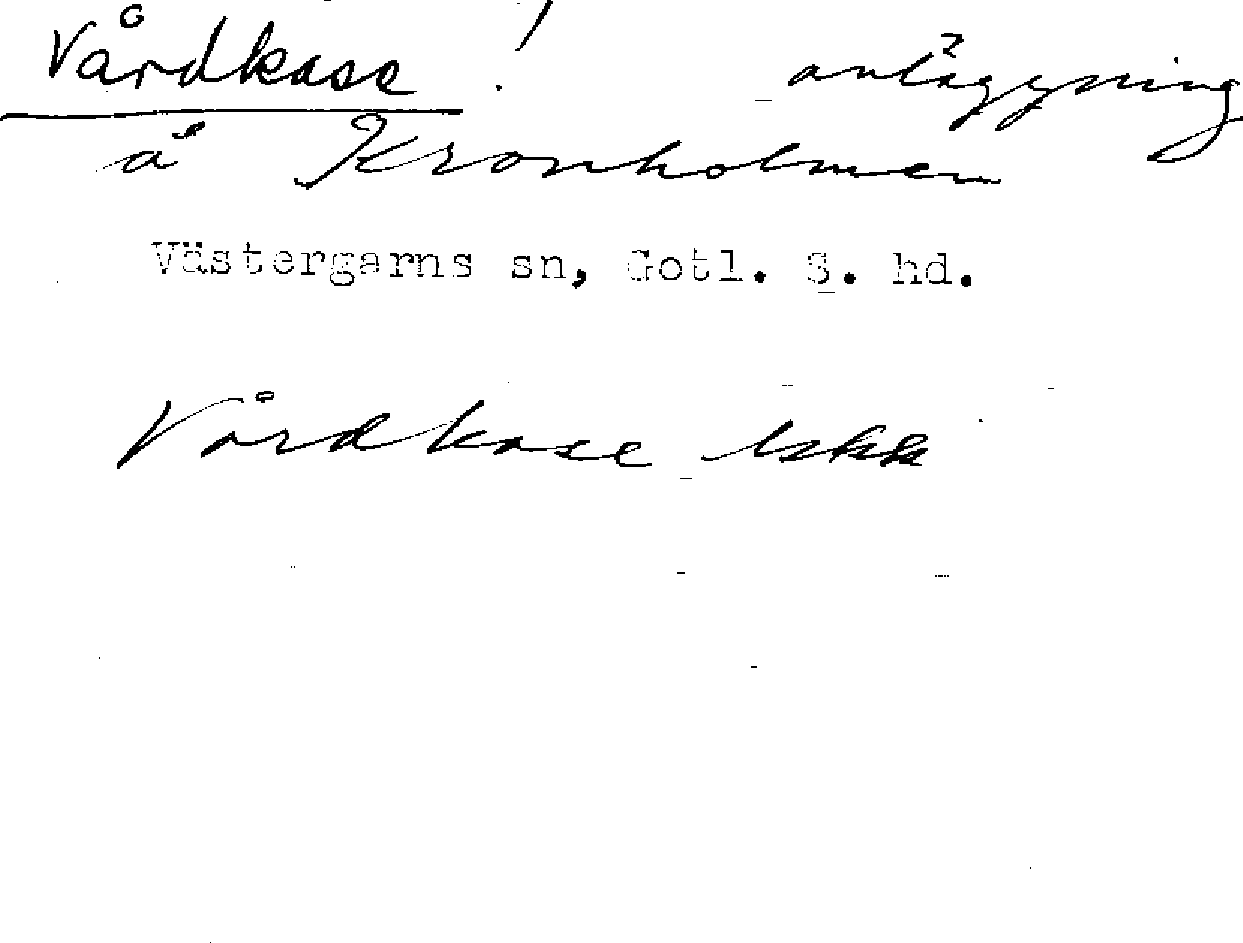 Vårdkase anläggning
å Kronholmen
Västergarns sn, Gotl. S. hd.
Vårdkase